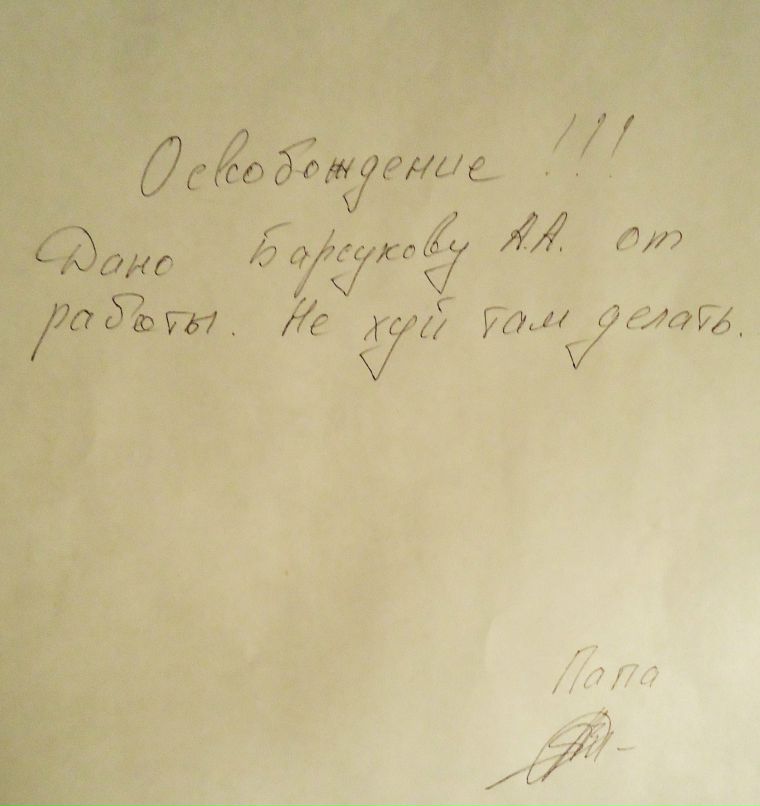 Освобождение !!!
Дано Барсукову А.А. от
работы. Не хуй там делать.
Папа